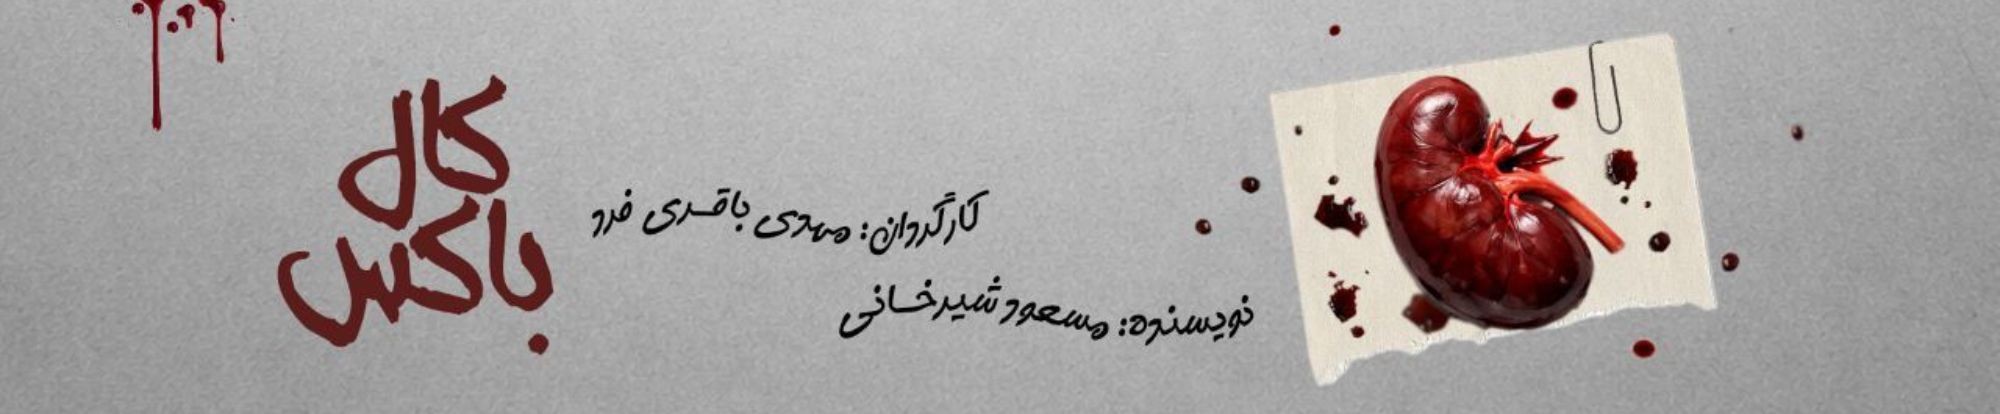 کال
باکس
کارگردان: مهدی باقری فرد
نویسنده: مسعود شیرخانی